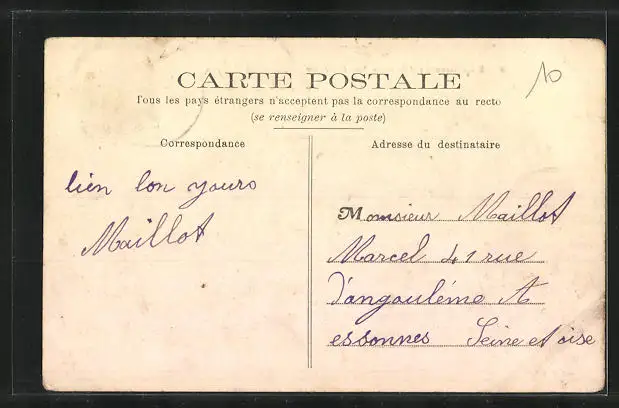 10
CARTE POSTALE
Tous les pays étrangers n'acceptent pas la correspondance au recto
(se renseigner à la poste)
Correspondance
Adresse du destinataire
bien bon yours
Maillot
Monsieur Maillot
Marcel 41 rue
d'angoulême A
essonnes Seine et oise